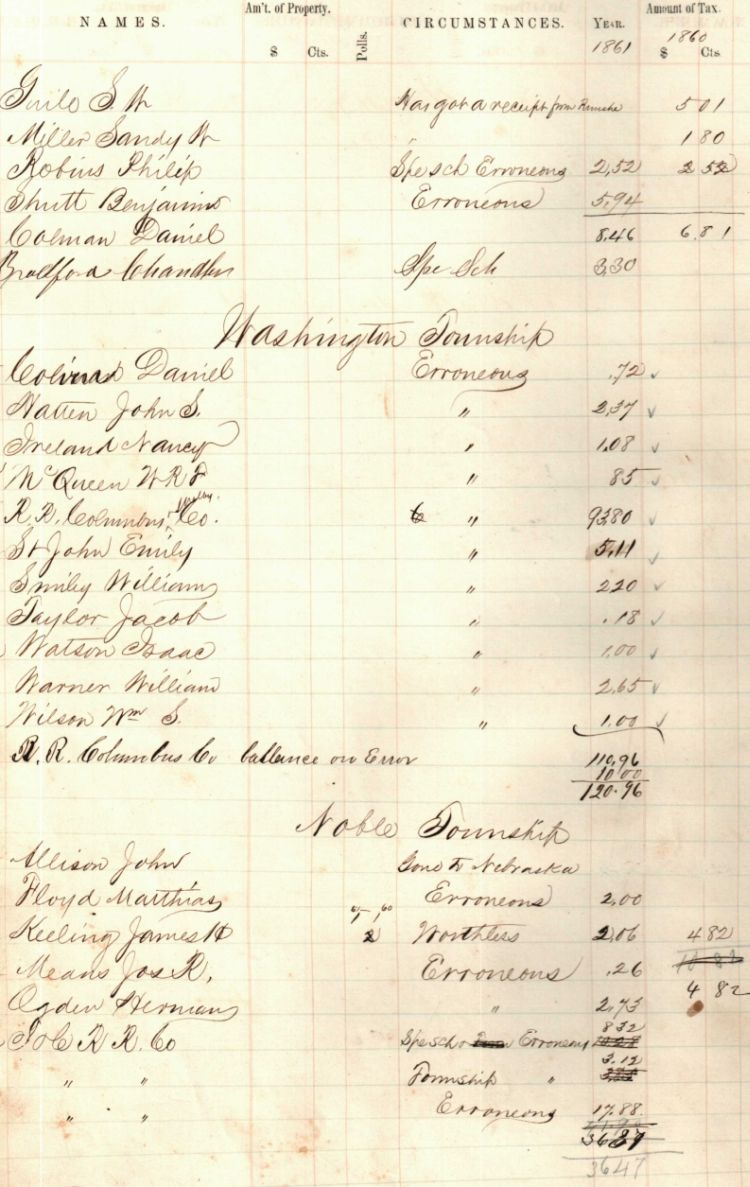 NAMES. Am't. of Property. $ Cts. Polls. CIRCUMSTANCES. Year. 1861 Amount of Tax. 1860 $ Cts
Guilo S. W Has got a receipt from 5 01
Miller Sandy W 1 80
Robins Philip Spe sch Erroneous 2,52 2 52
Shutt Benjamin Erroneous 5,94
Colman Daniel 8,46 6.81
Bradford Chandler Spe Sch 3,30
Washington Township
Daniel Erroneous ,72 ✓
Hatten John S. " 2,37 ✓
Ireland Nancy " 1.08 ✓
McQueen W R F " 85 ✓
R R. Columbus & Shelby Co. " 93.80 ✓
St John Emily " 5,11 ✓
Smiley William " 2 20 ✓
Taylor Jacob " .18 ✓
Watson Isaac " 1,00 ✓
Warner William " 2,65 ✓
Wilson Wm S. " 1.00 ✓
R. R. Columbus Co ballance on Error 110,96
10 00
120.96
Noble Township
Allison John Gone to Nebraska
Floyd Matthias Erroneous 2,00
Keeling James H 2 Worthless 2,06 4 82
Means Jos R, Erroneous .26
4 82
Ogden Herman " 2,73
R R. Co Spe scho Erroneous 8 32
" " Township " 3.12
" " Erroneous 17.88
36 47